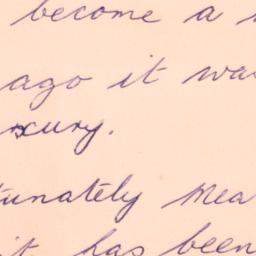 become a
ago it was
xury.
tunately Mea
it has been